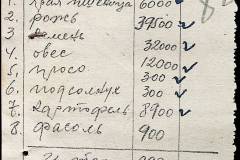 1. яровая пшеница 6000
2. рожь 39500
3. ячмень
4. овес 32000
5. просо 12000
300
6. подсолнух 300
7. картофель 8900
8. фасоль 900